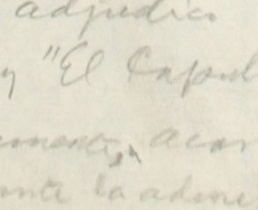 adjudica
y "El Capul
amente, acor
ante la adme